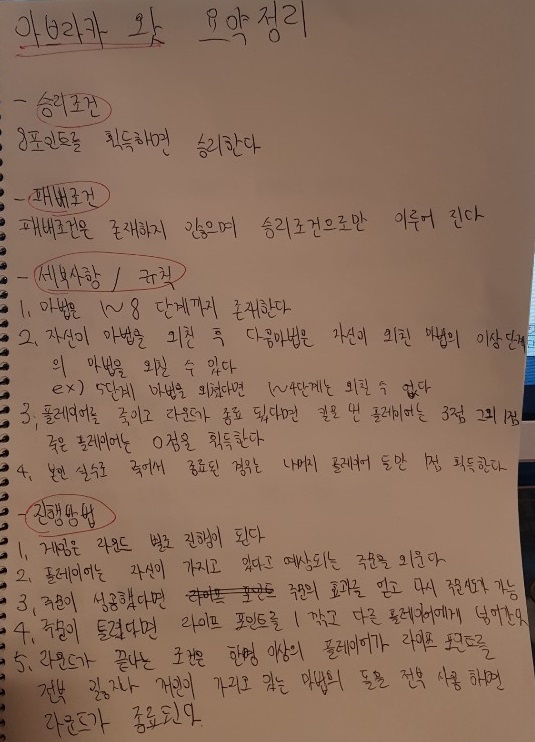 아브라카 왓 요약정리
- 승리조건
8포인트를 획득하면 승리한다
- 패배조건
패배조건은 존재하지 않으며 승리조건으로만 이루어 진다
- 세부사항 / 규칙
1, 마법은 1~8 단계까지 존재한다
2, 자신이 마법을 외친 후 다음마법은 자신이 외친 마법의 이상 단계
의 마법을 외칠 수 있다
ex) 5단계 마법을 외쳤다면 1~4단계는 외칠 수 없다
3, 플레이어를 죽이고 라운드가 종료 됬다면 킬을 낸 플레이어는 3점 그외 1점
죽은 플레이어는 0점을 획득한다
4, 본인 실수로 죽어서 종료된 경우는 나머지 플레이어 들만 1점 획득한다
- 진행방법
1, 게임은 라운드 별로 진행이 된다
2, 플레이어는 자신이 가지고 있다고 예상되는 주문을 외운다
3, 주문이 성공했다면 라이프 포인트 주문의 효과를 얻고 다시 주문시도가 가능
4, 주문이 틀렸다면 라이프 포인트를 1 깎고 다른 플레이어에게 넘어간다
5, 라운드가 끝나는 조건은 한명 이상의 플레이어가 라이프 포인트를
전부 잃거나 가지고 있는 마법의 돌을 전부 사용 하면
라운드가 종료된다